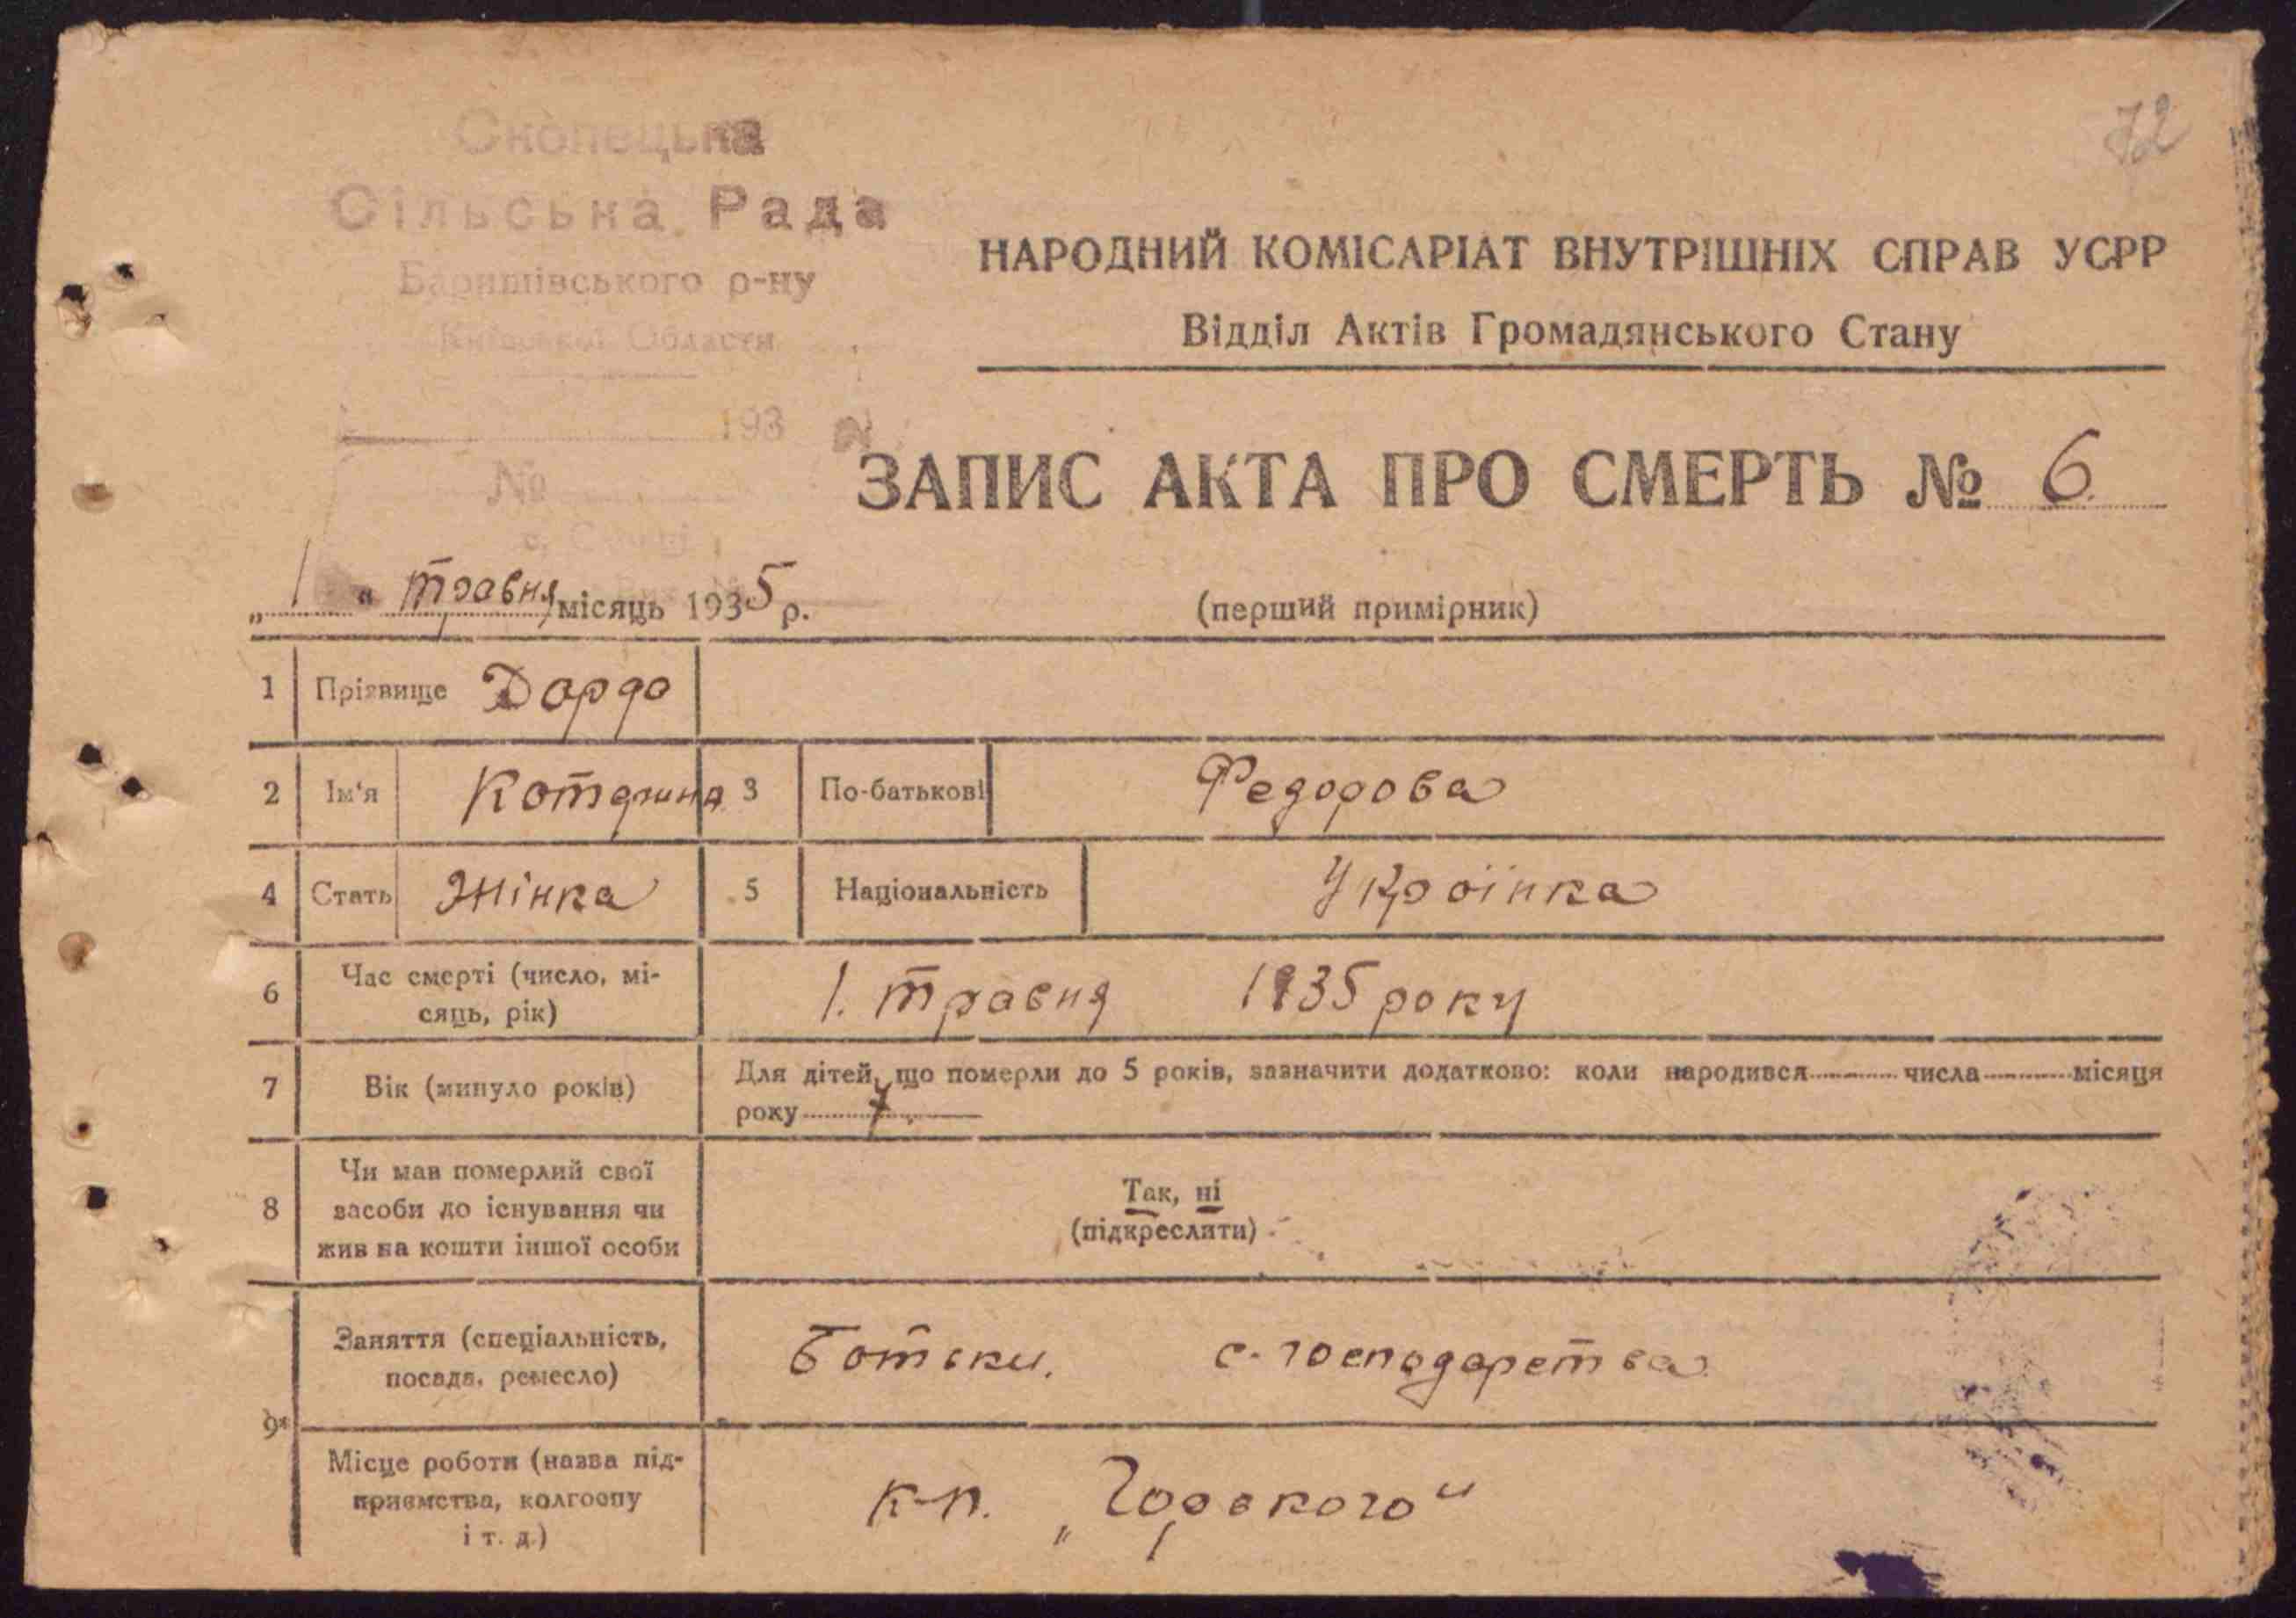 72
Скопецька
Сільська Рада
Баришівського р-ну
Київської Области
193
№
НАРОДНИЙ КОМІСАРІАТ ВНУТРІШНІХ СПРАВ УСРР
Відділ Актів Громадянського Стану
ЗАПИС АКТА ПРО СМЕРТЬ № 6.
„ 1 “ травня місяць 1935 р.
(перший примірник)
1 Прізвище Дардо
2 Ім‘я Котерина 3 По-батькові Федорова
4 Стать Жінка 5 Національність Українка
6 Час смерті (число, мі-
сяць, рік) 1. травня 1935 року
7 Вік (минуло років) Для дітей, що померли до 5 років, зазначити додатково: коли народився числа місяця
року
8 Чи мав померлий свої
засоби до існування чи
жив на кошти іншої особи
Так, ні
(підкреслити)
9*
Заняття (спеціальність,
посада, ремесло)Ботьки. с-господарства
Місце роботи (назва під-
приємства, колгоспу
і т. д.) к-п. „Горького“